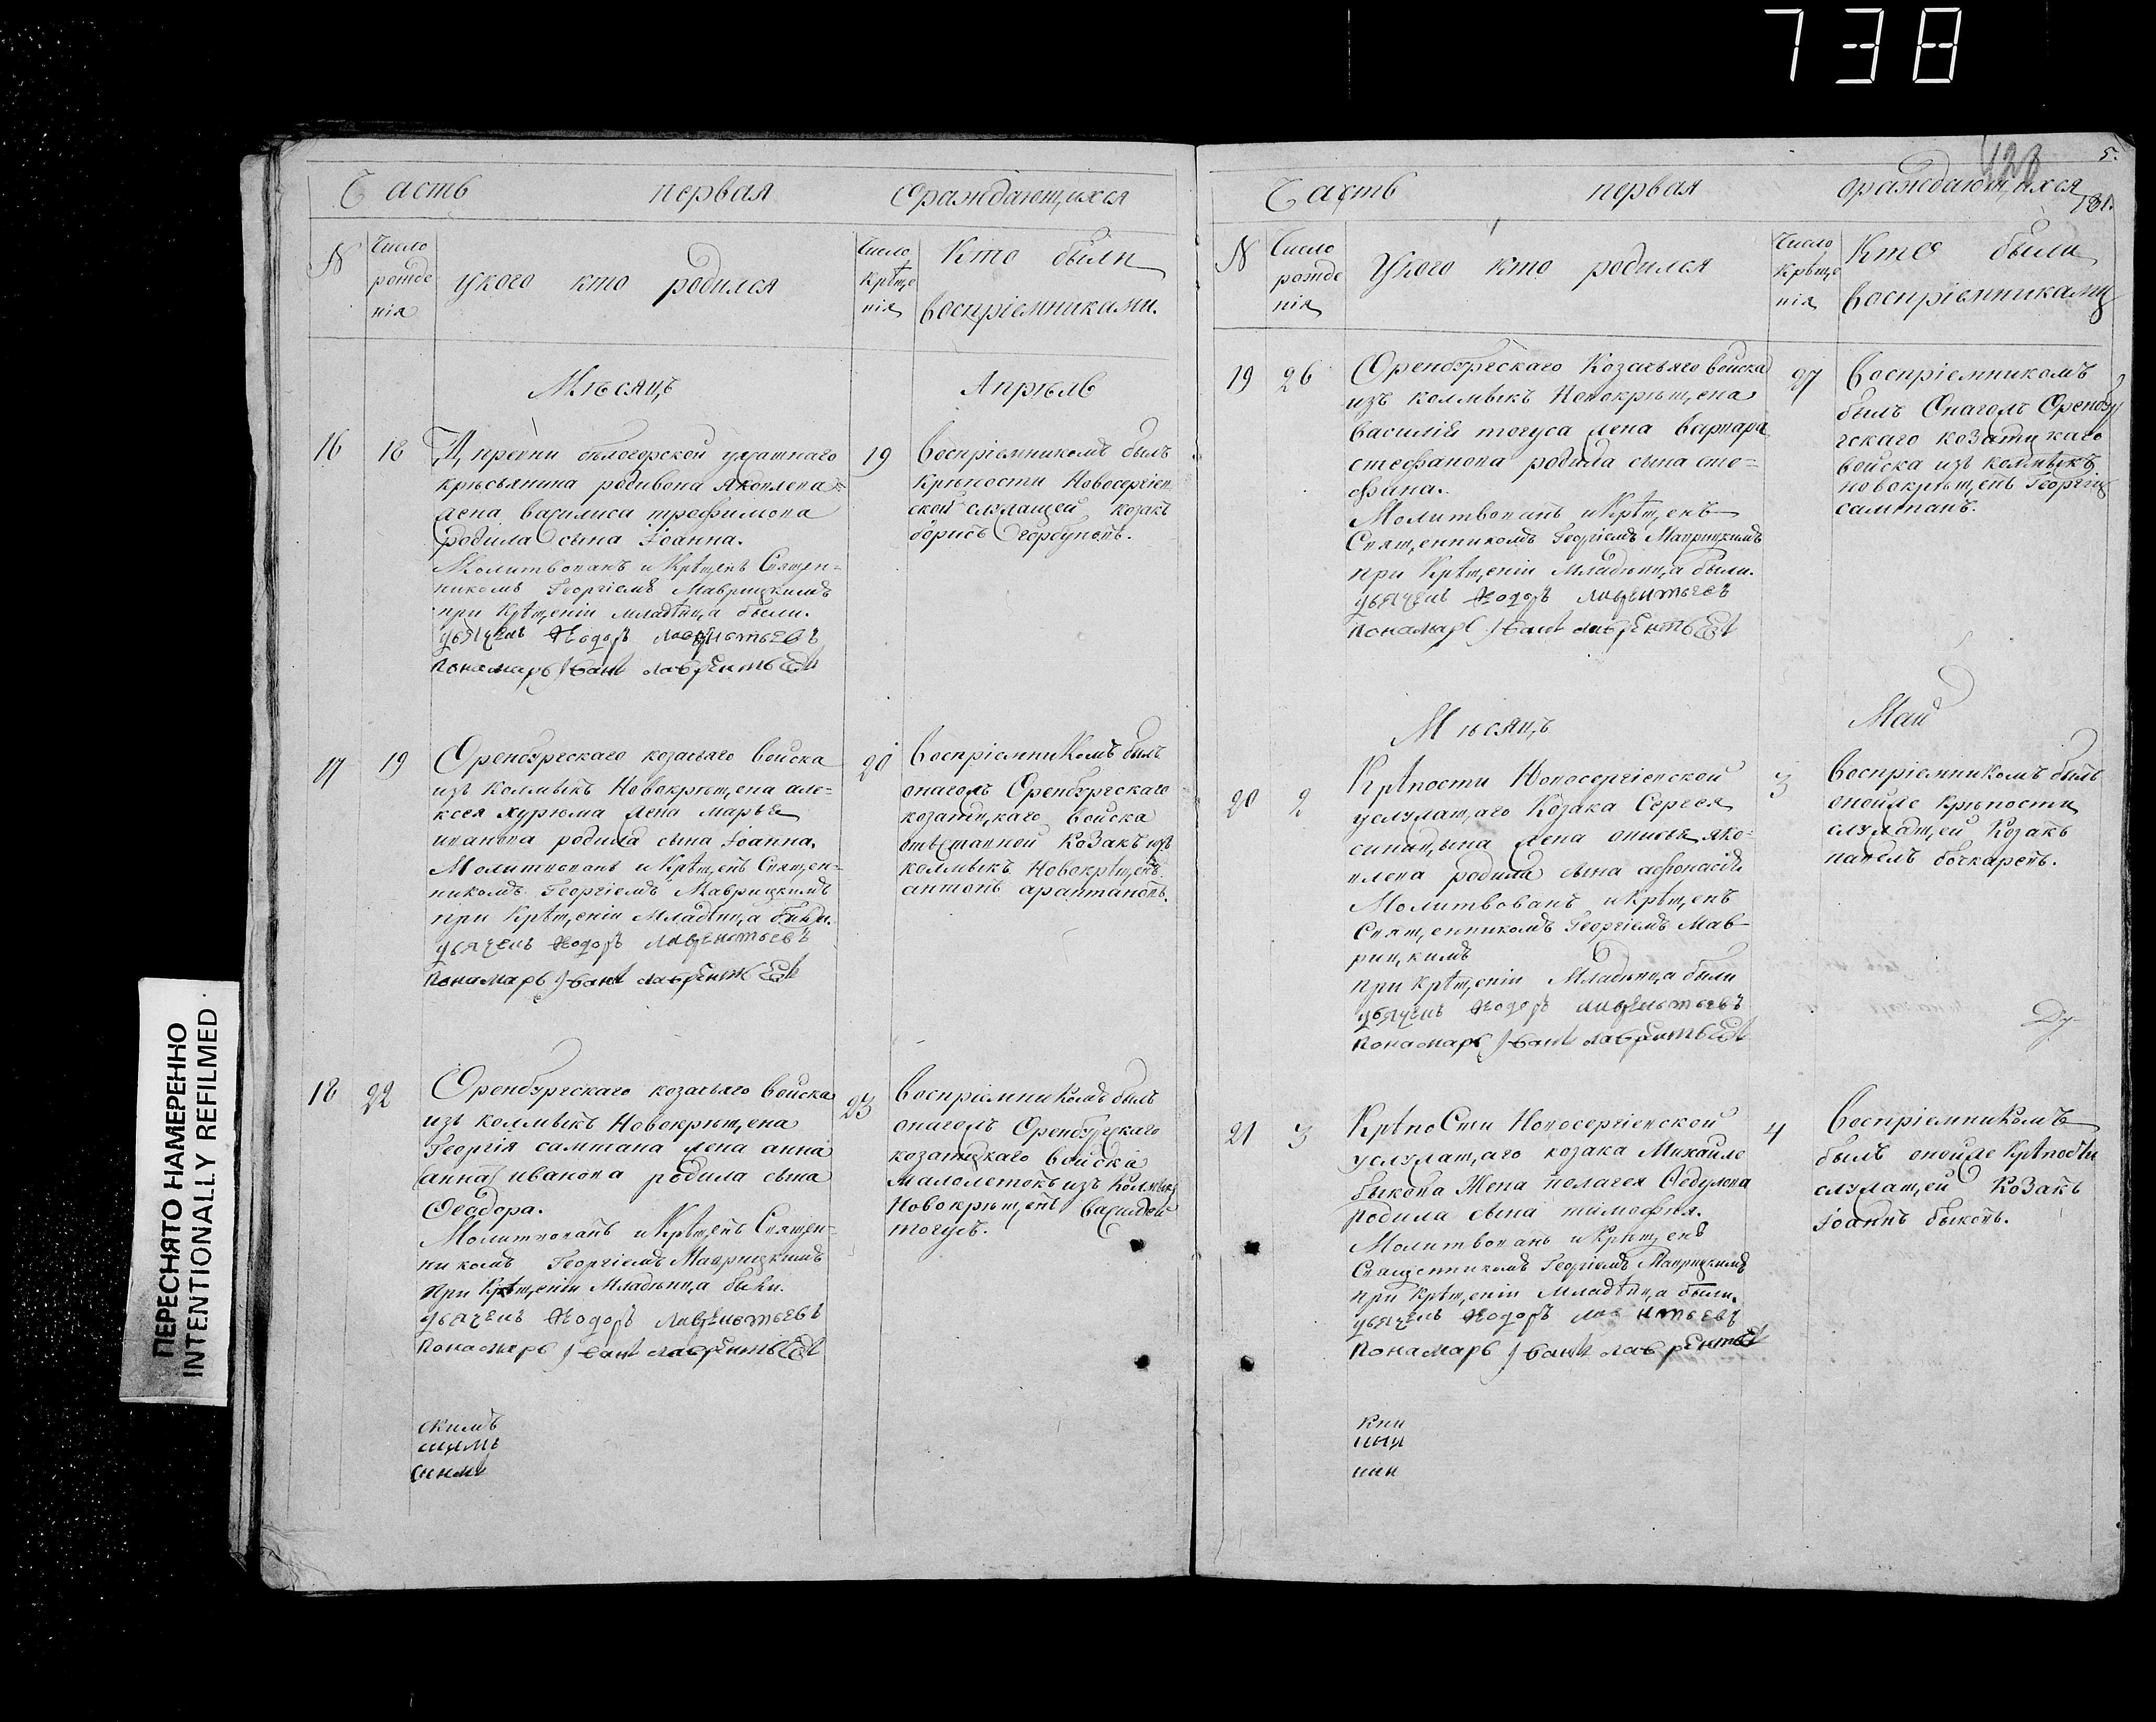 738
Часть первая ораждающихся
N
Число рожденія
укого кто родился
Число крѣщенія
Кто были воспріемниками.
Мѣсяцъ Апрѣль
16
18
Деревни бѣлогорской
крѣсьянина родивона Яковлева
жена василиса трофимова
родила сына Іоанна.
Молитвованъ и Крѣщенъ Священ-
никомъ Георгіемъ Маврицкимъ
при Крѣщеніи младѣнца были.
дьячекъ Ѳедоръ лаврентьевъ
пономарь Іванъ лаврентьевъ
19
Воспріемникомъ былъ
крѣпости Новосергіев
ской служащей козакъ
борисъ горбуновъ.
17
19
Оренбургскаго козачьяго войска
изъ колмыкъ Новокрѣщена але-
ксея хурюма жена марья
иванова родила сына Іоанна.
Молитвованъ и Крѣщенъ Священ-
никомъ Георгіемъ Маврицкимъ
при Крѣщеніи Младѣнца были.
дьячекъ Ѳедоръ лаврентьевъ
пономарь Іванъ лаврентьевъ
20
Воспріемникомъ былъ
онагожъ Оренбургскаго
козатцкаго войска
отставной козакъ изъ
колмыкъ Новокрѣщенъ
антонъ араптановъ.
18
22
Оренбургскаго козачьяго войска
изъ колмыкъ Новокрѣщена
Георгія самтана жена анна
(анна) иванова родила сына
Ѳеадора.
Молитвованъ и Крѣщенъ Священ-
никомъ Георгіемъ Маврицкимъ
при Крѣщеніи Младѣнца были.
дьячекъ Ѳедоръ лаврентьевъ
пономарь Іванъ лаврентьевъ
23
Воспріемникомъ былъ
онагожъ Оренбургскаго
козатцкаго войска
малолетокъ изъ колмыкъ
Новокрѣщенъ василей
тогусъ.
скимъ
скимъ
скимъ
ПЕРЕСНЯТО НАМЕРЕННО
INTENTIONALLY REFILMED
428
5.
Часть первая ораждающихся
N
Число рожденія
Укого кто родился
Число Крѣщенія
Кто были воспріемниками
19
26
Оренбургскаго Козачьяго войска
изъ колмыкъ Новокрѣщена
василія тогуса жена варвара
стефанова родила сына сте-
фана.
Молитвованъ и Крѣщенъ
Священникомъ Георгіемъ Маврицкимъ
при Крѣщеніи Младѣнца были.
дьячекъ Ѳедоръ лаврентьевъ
пономарь Іванъ лаврентьевъ
27
Воспріемникомъ
былъ Онагожъ Оренбу
гскаго козатцкаго
войска изъ колмыкъ
новокрѣщенъ Георгій
самтанъ.
Мѣсяцъ Маи
20
2
Крѣпости Новосергіевской
услужащаго Козака Сергея
синицына жена яко-
влева родила сына афонасія
Молитвованъ и Крѣщенъ
Священникомъ Георгіемъ Мав-
рицкимъ
при Крѣщеніи Младѣнца были
дьячекъ Ѳедоръ лаврентьевъ
пономарь Іванъ лаврентьевъ
3
Воспріемникомъ былъ
оной же крѣпости
служащей Козакъ
павелъ бочкаревъ.
21
3
Крѣпости Новосергіевской
услужащаго козака Михайло
быкова Жена пелагея Ѳедулова
родила сына тимофея.
Молитвованъ и Крѣщенъ
Священникомъ Георгіемъ Маврицкимъ
при Крѣщеніи Младѣнца были.
дьячекъ Ѳедоръ лаврентьевъ
пономарь Іванъ лаврентьевъ
4
Воспріемникомъ
былъ оной же Крѣпости
служащей Козакъ
Іоаннъ быковъ.